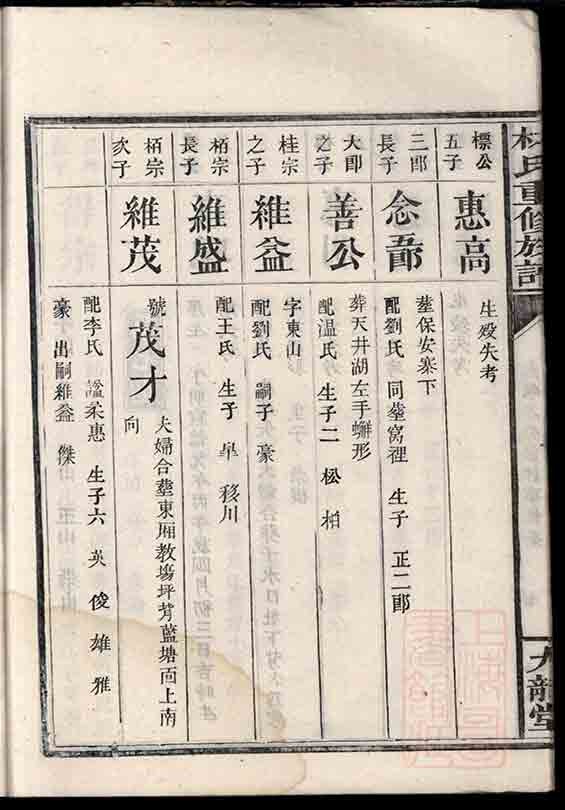 林氏重修族譜
九龍堂
標公五子
惠高
生歿失考
三郎長子
念郚
塟保安寨下
配劉氏 同塟窩裡 生子 正二郎
大郎之子
善公
葬天井湖左手蠏形
配温氏 生子二 松 栢
桂宗之子
維益
字東山
配劉氏 嗣子 豪
栢宗長子
維盛
配王氏 生子 阜 移川
栢宗次子
維茂
號茂才 夫婦合塟東厢教塲坪背藍塘靣上南向
配李氏 諡柔惠 生子六 英 俊 雄 雅
豪 出嗣維益 傑